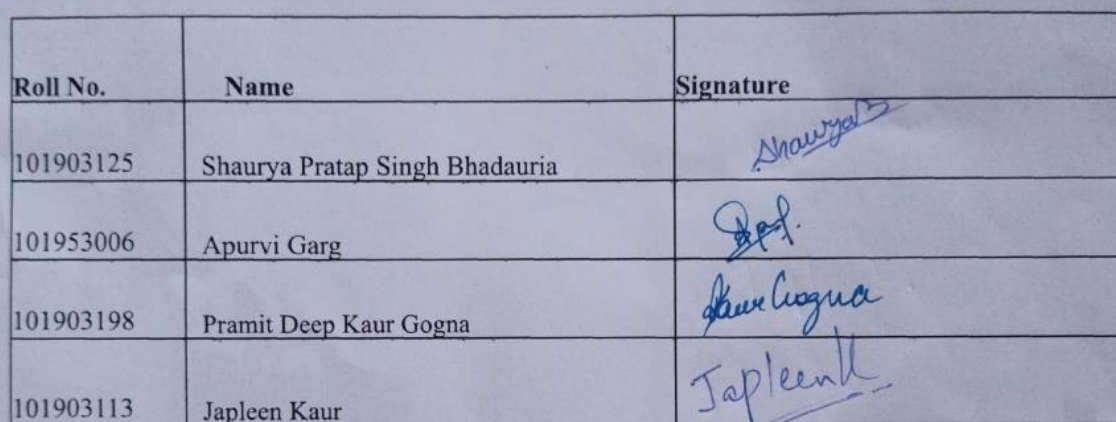 Roll No. Name Signature
101903125 Shaurya Pratap Singh Bhadauria ShauryaB
101953006 Apurvi Garg
101903198 Pramit Deep Kaur Gogna Kaur Gogna
101903113 Japleen Kaur JapleenK